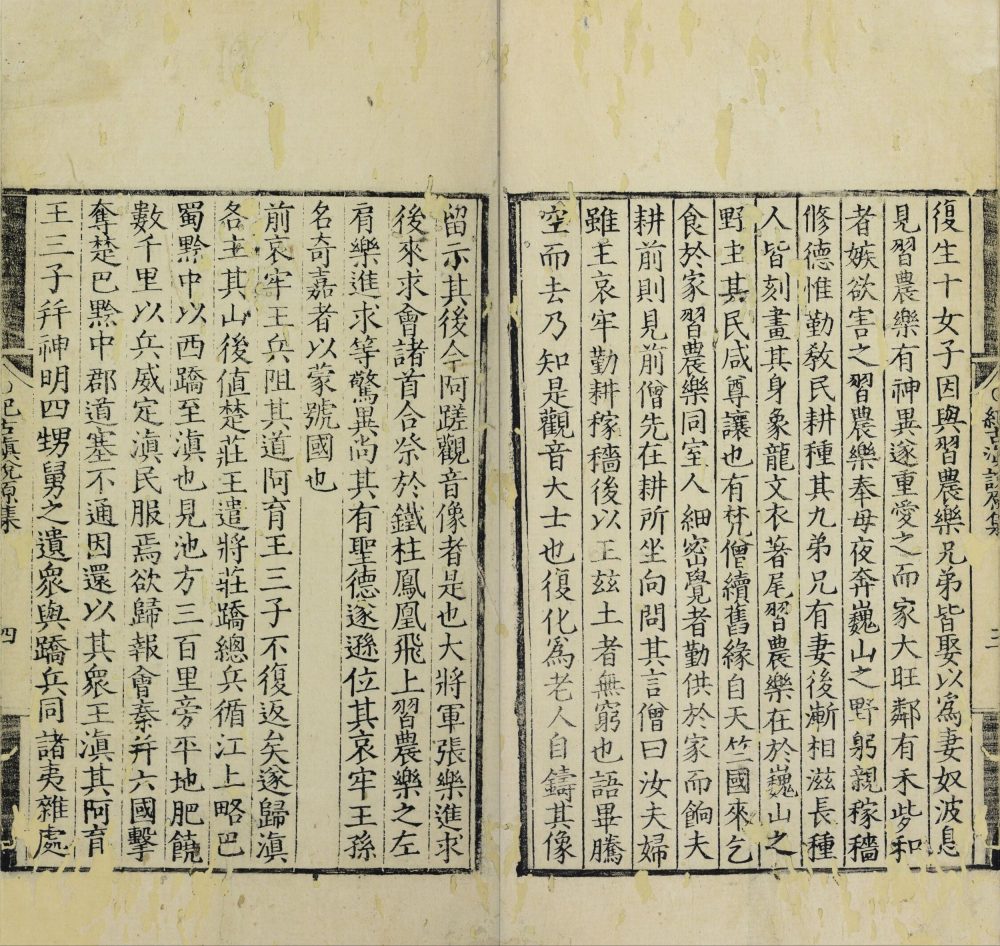 復生十女子因與習農樂兄弟皆娶以爲妻奴波息
見習農樂有神異遂重愛之而家大旺鄰有禾些和
者嫉欲害之習農樂奉母夜奔巍山之野躬親稼穡
修德惟勤敎民耕種其九弟兄有妻後漸相滋長種
人皆刻畫其身象龍文衣著尾習農樂在於巍山之
野主其民咸尊讓也有梵僧續舊緣自天竺國來乞
食於家習農樂同室人細密覺者勤供於家而餉夫
耕前則見前僧先在耕所坐向問其言僧曰汝夫婦
雖王哀牢勤耕稼穡後以王玆土者無窮也語畢騰
空而去乃知是觀音大士也復化爲老人自鑄其像
紀古滇說原集
三
留示其後今阿蹉觀音像者是也大將軍張樂進求
後來求會諸首合祭於鐵柱鳳凰飛上習農樂之左
肩樂進求等驚異尚其有聖德遂遜位其哀牢王孫
名奇嘉者以蒙號國也
前哀牢王兵阻其道阿育王三子不復返矣遂歸滇
各主其山後値楚莊王遣將莊蹻總兵循江上略巴
蜀黔中以西蹻至滇也見池方三百里旁平地肥饒
數千里以兵威定滇民服焉欲歸報會秦幷六國擊
奪楚巴黔中郡道塞不通因還以其衆王滇其阿育
王三子幷神明四甥舅之遺衆與蹻兵同諸夷雜處
紀古滇說原集
四